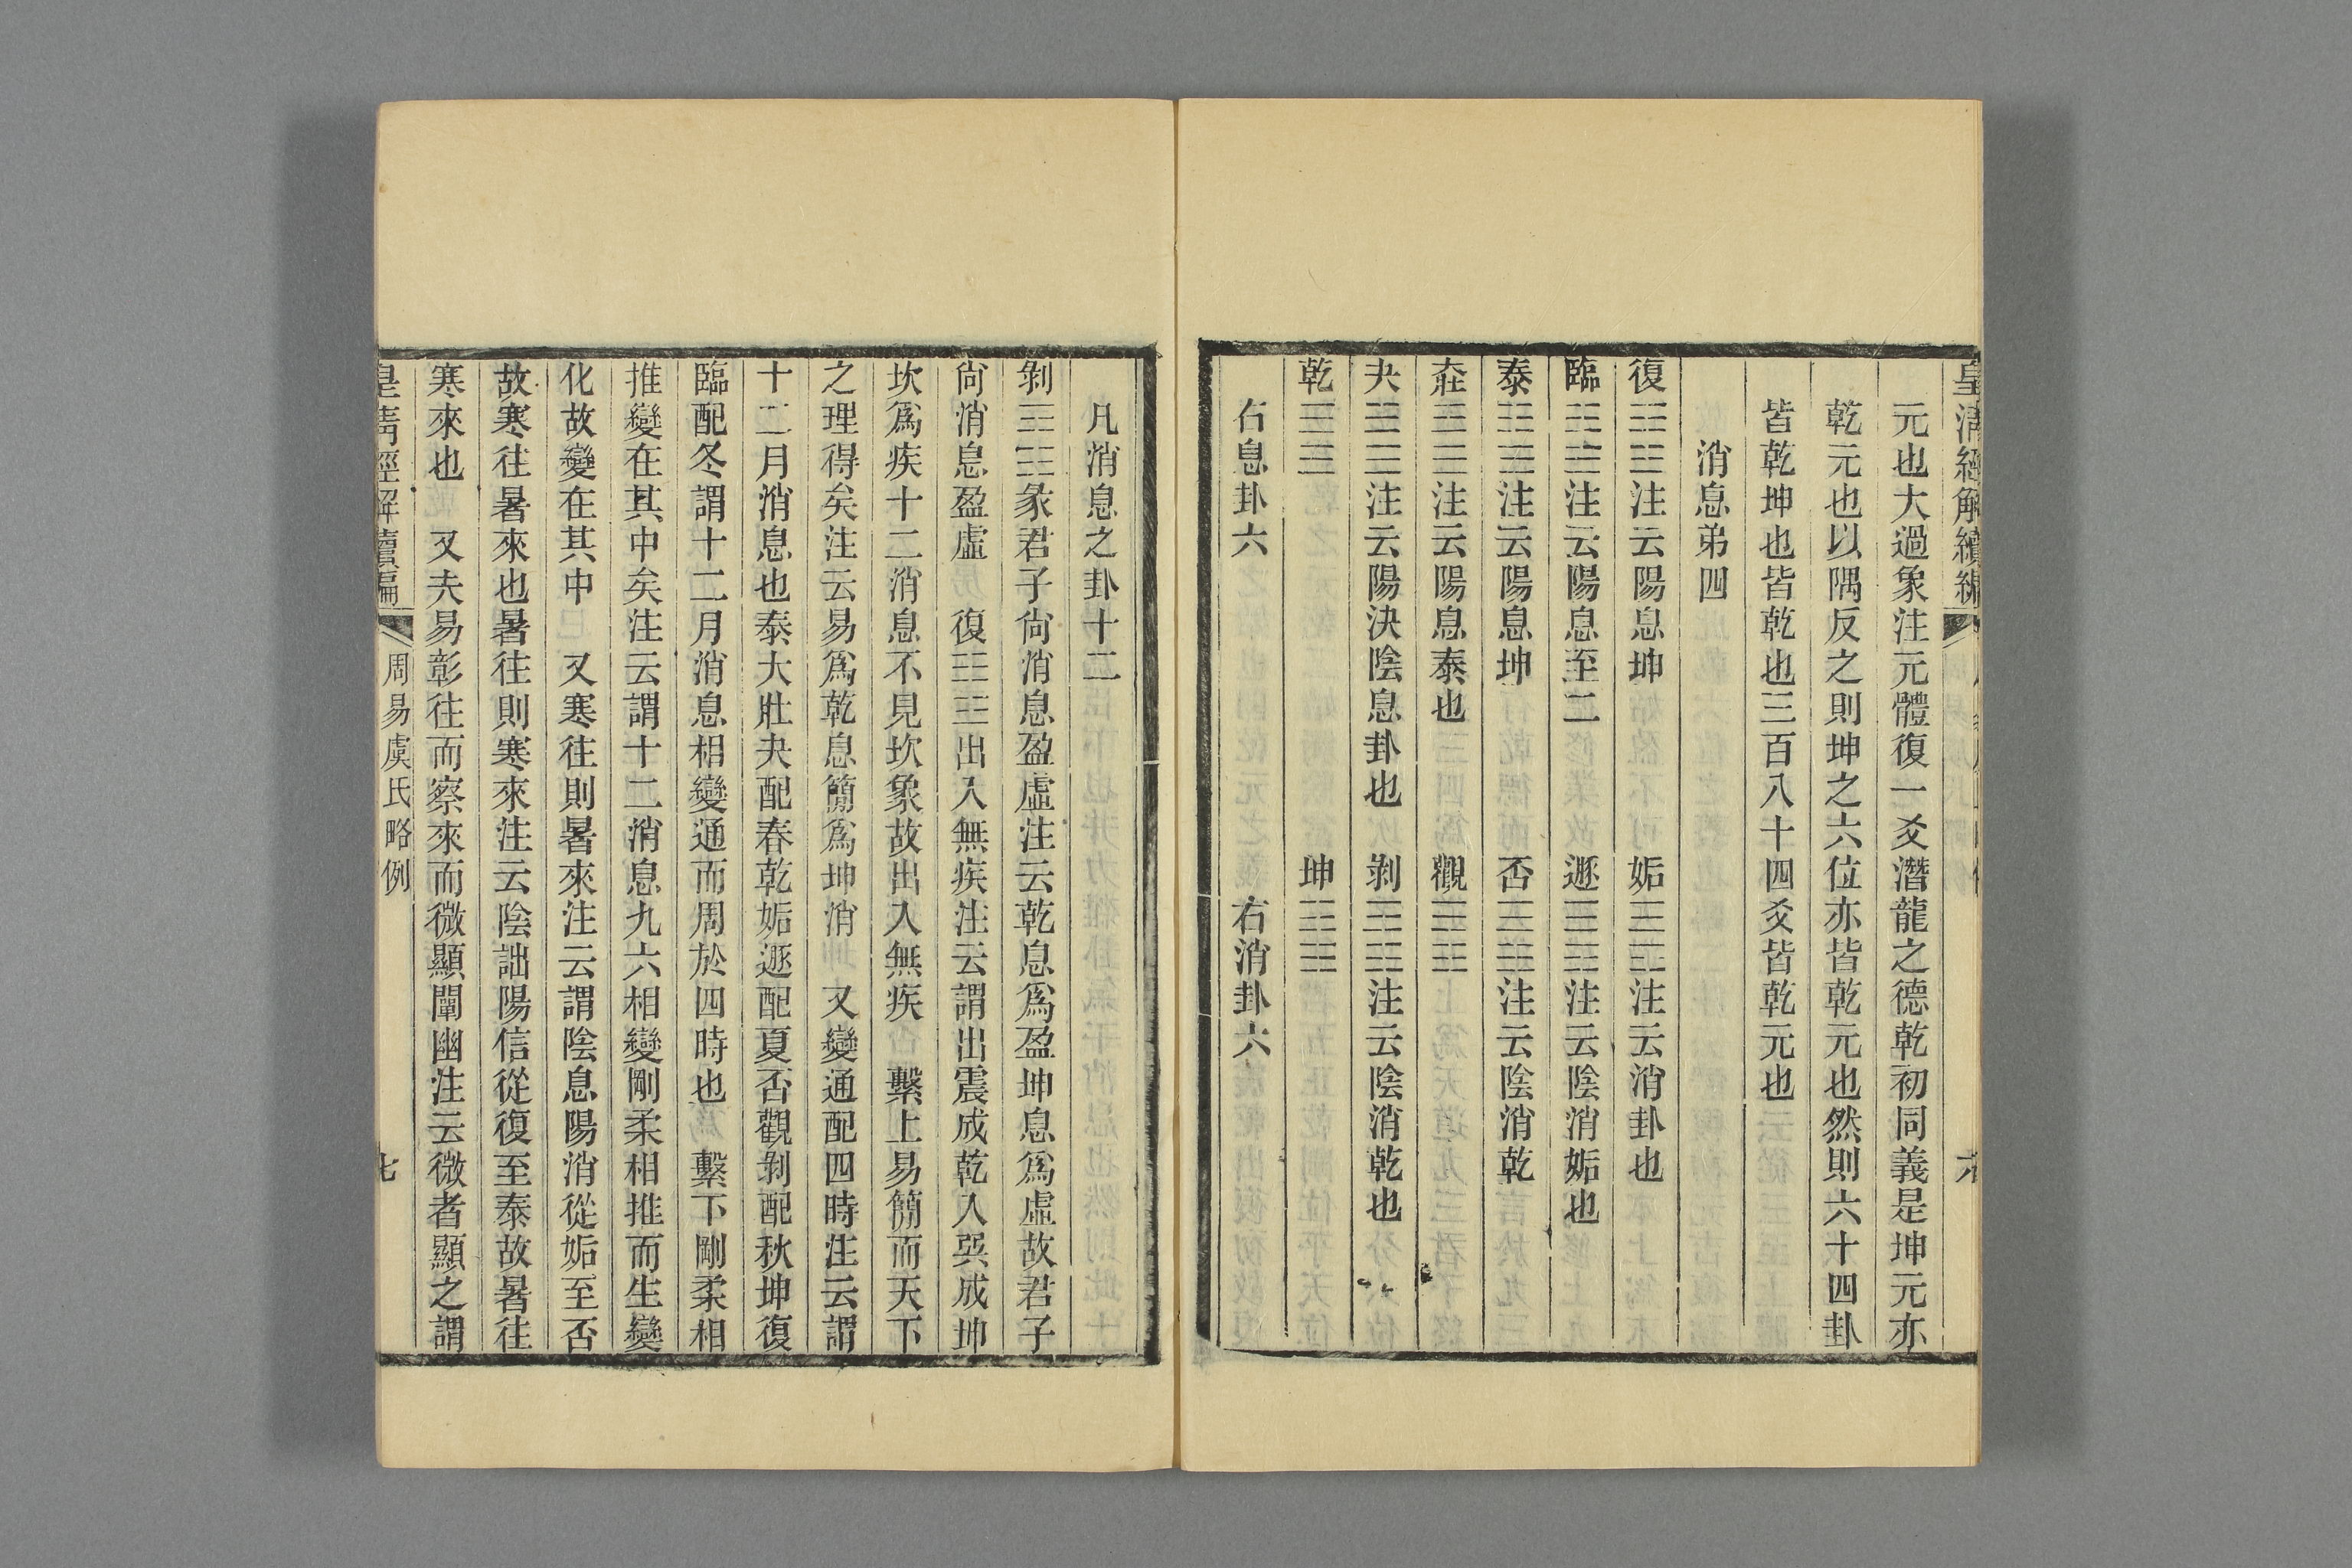 皇清經解續編
六
元也大過象注元體復一爻潛龍之德乾初同義是坤元亦
乾元也以隅反之則坤之六位亦皆乾元也然則六十四卦
皆乾坤也皆乾也三百八十四爻皆乾元也
消息弟四
復☷☳注云陽息坤 姤☰☴注云消卦也
臨☷☱注云陽息至二 遯☰☶注云陰消姤也
泰☷☰注云陽息坤 否☰☷注云陰消乾
壯☳☰注云陽息泰也 觀☴☷
夬☱☰注云陽決陰息卦也 剝☶☷注云陰消乾也
乾☰☰ 坤☷☷
右息卦六 右消卦六
凡消息之卦十二
剝☶☷彖君子尙消息盈虛注云乾息爲盈坤息爲虛故君子
尙消息盈虛 復☷☳出入無疾注云謂出震成乾入巽成坤
坎爲疾十二消息不見坎象故出入無疾 繫上易簡而天下
之理得矣注云易爲乾息簡爲坤消 又變通配四時注云謂
十二月消息也泰大壯夬配春乾姤遯配夏否觀剝配秋坤復
臨配冬謂十二月消息相變通而周於四時也 繫下剛柔相
推變在其中矣注云謂十二消息九六相變剛柔相推而生變
化故變在其中 又寒往則暑來注云謂陰息陽消從姤至否
故寒往暑來也暑往則寒來注云陰詘陽信從復至泰故暑往
寒來也 又夫易彰往而察來而微顯闡幽注云微者顯之謂
皇淸經解續編
周易虞氏略例
七